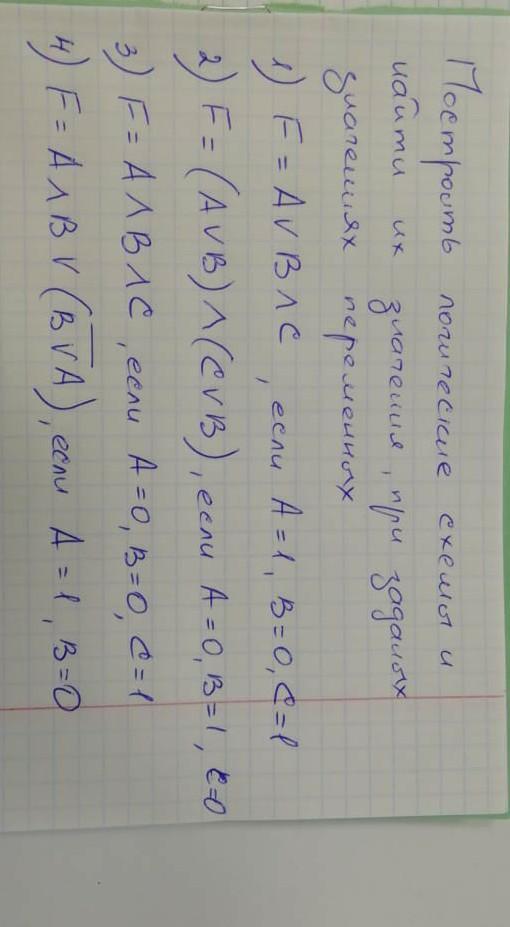 Построить логические схемы и
найти их значения, при заданых
значениях переменных
1) F = A ∨ B ∧ C, если A = 1, B = 0, C = 1
2) F = (A ∨ B) ∧ (C ∨ B), если A = 0, B = 1, C = 0
3) F = A ∧ B ∧ C, если A = 0, B = 0, C = 1
4) F = A ∧ B ∨ (B̅ ̅∨̅ ̅A̅), если A = 1, B = 0